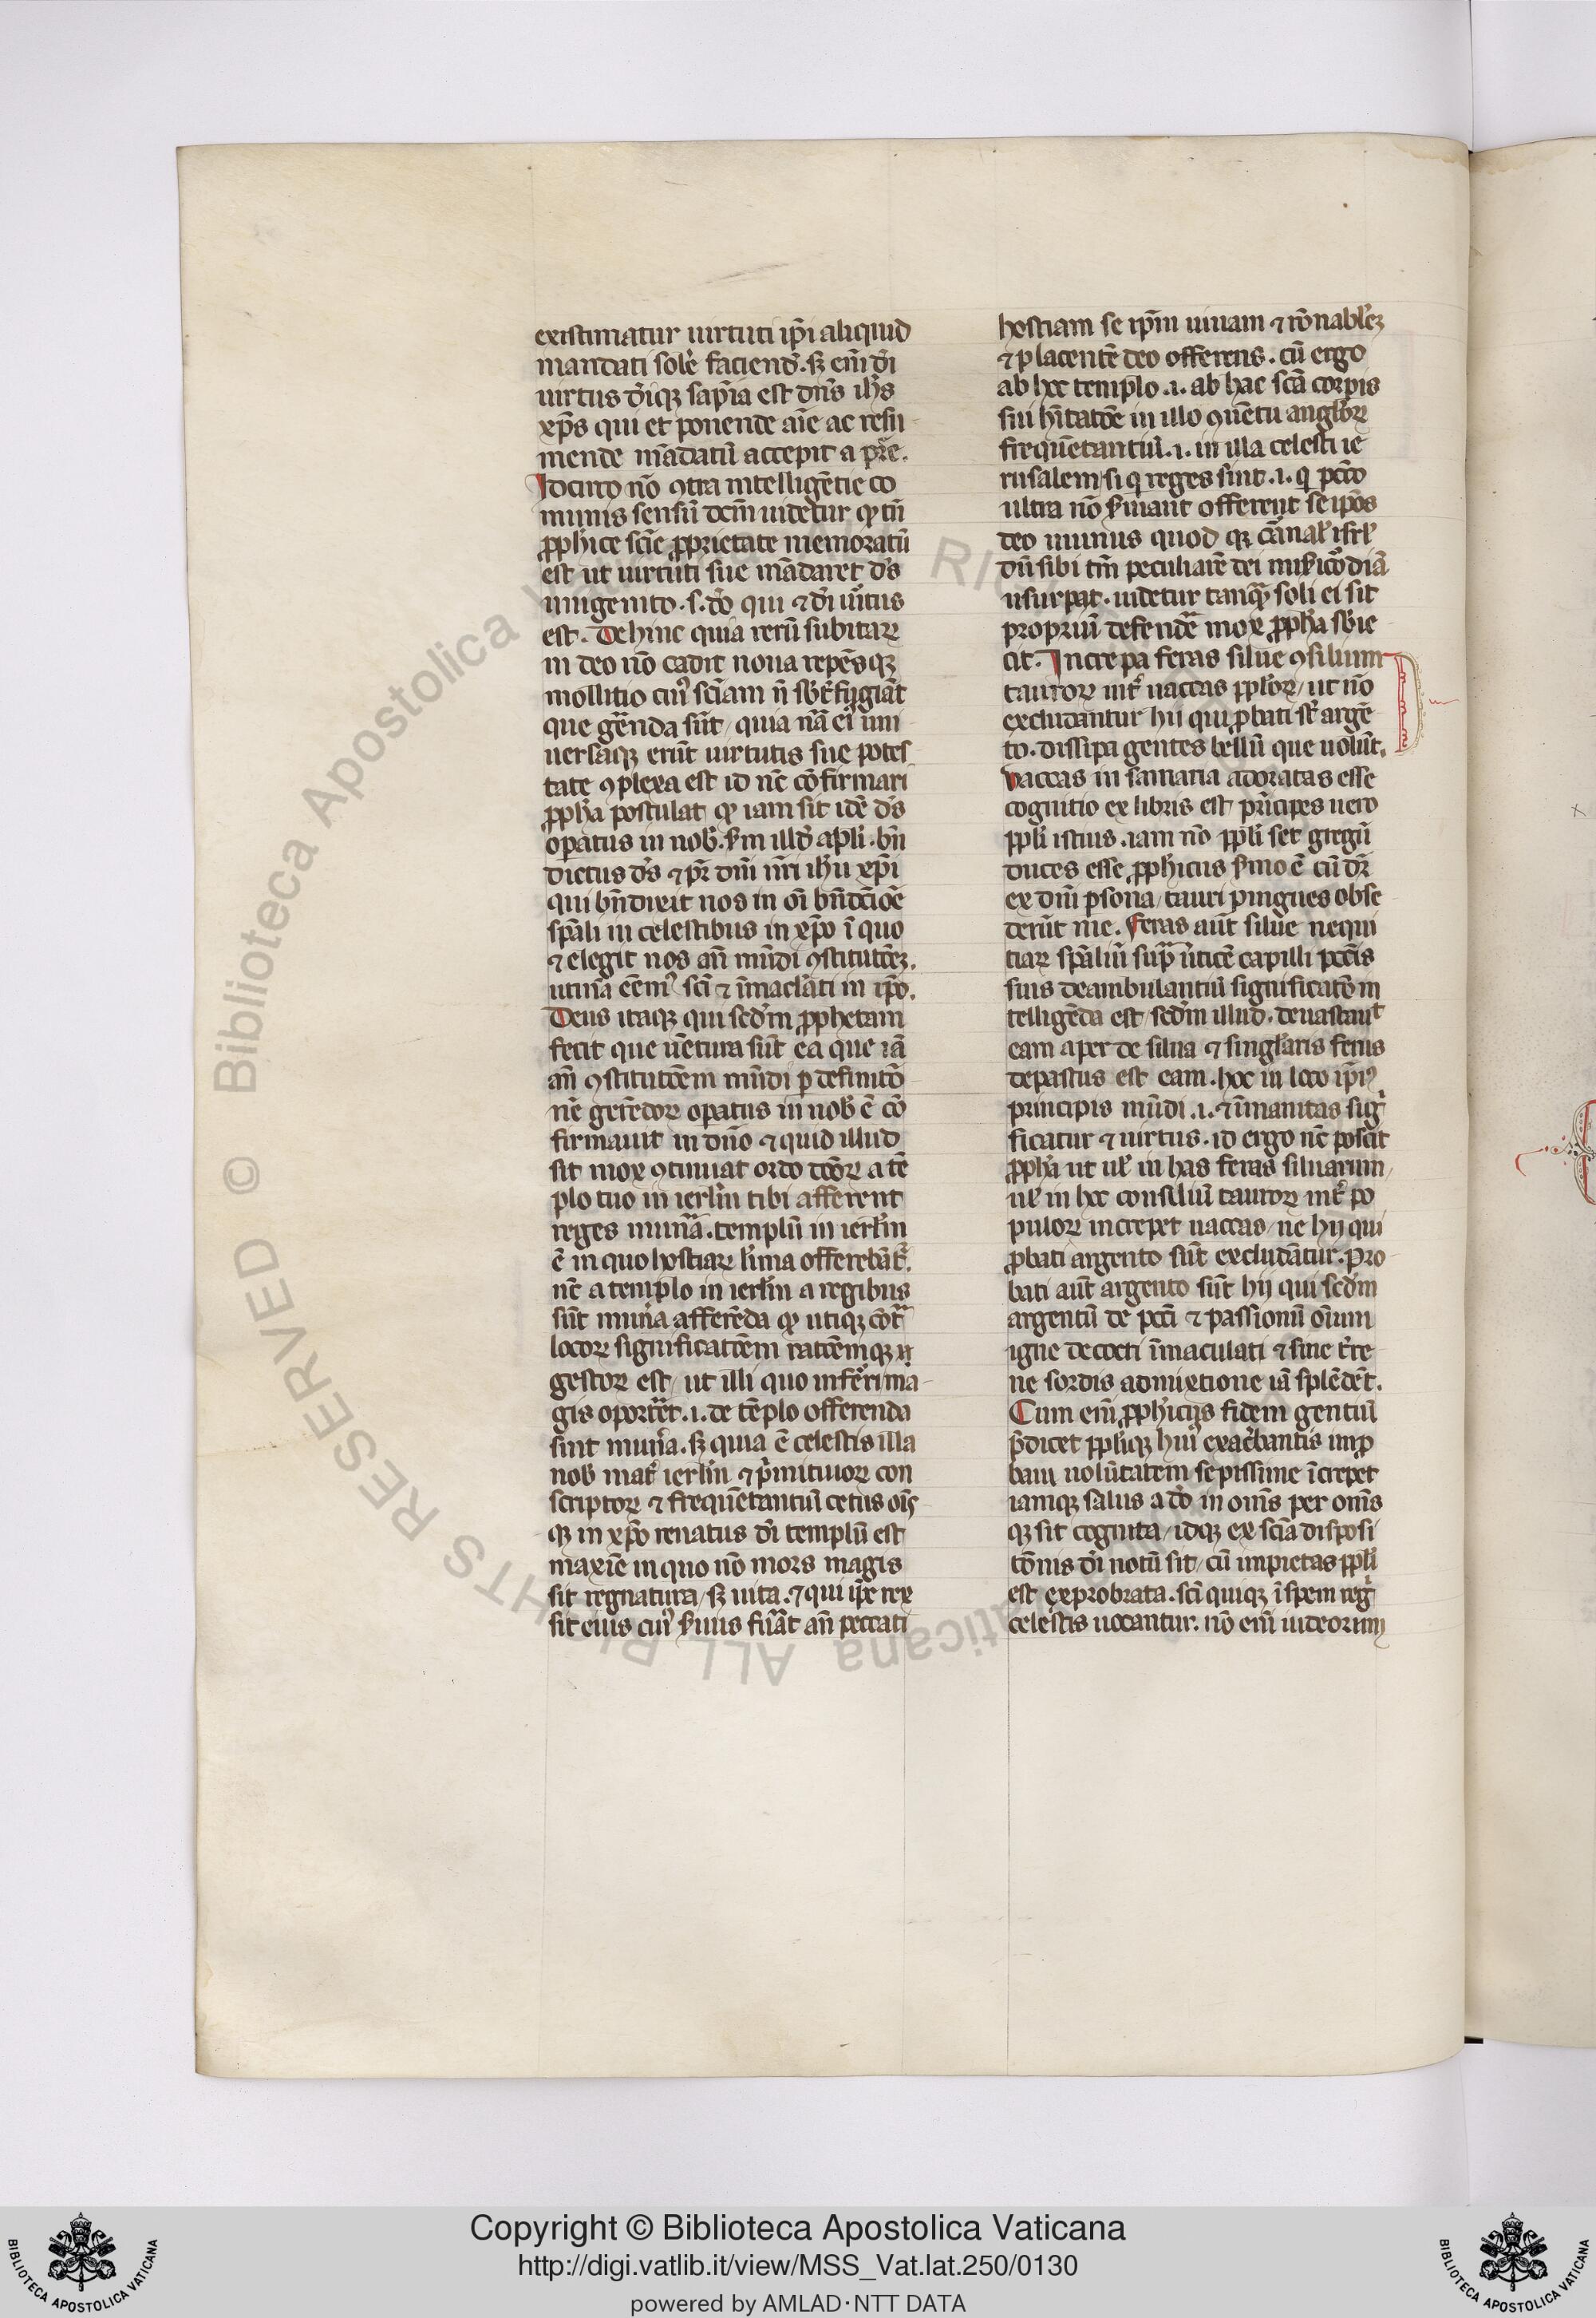 existimatur uirtuti ip̄i aliquid
mandati solēre faciend̄. sꝫ eni᷒ dī
uirtus dīqꝫ sap̄ia est dn̄s ih̄s
xp̄s qui et ponende aīe ac resu
mende mādatū accepit a pr̄e.
Idcirco nō ꝯtra intelligētie co
munis sensū dcm̄ uidetur ꝙ tn̄
ꝓph̄ice scīe ꝓprietate memoratū
est ut uirtuti sue mādaret ds̄
unigenito .s. dō qui ⁊ dī uirtus
est. Dehinc quia rerū subitaꝝ
in deo nō cadit noua repēsqꝫ
mollitio cuiꝰ sciam n̄ sb̄t̄fugiāt
que gerenda sūt / quia nā ei᷒ uni
uersaqꝫ erūt uirtutis sue potes
tate ꝯplexa est id nc̄ cōfirmari
ꝓph̄a postulat ꝙ iam sit idē ds̄
oꝑatus in nob̄. sm̄ illd̄ apl̄i. bn̄
dictus ds̄ ⁊ pr̄ dn̄i nr̄i ih̄u xp̄i
qui bn̄dixit nos in oī bn̄dc̄ōe
sp̄ali in celestibus in xp̄o ī quo
⁊ elegit nos an̄ mūdi ꝯstitutōeꝫ.
ut sim᷒ sci̅ ⁊ īmaclati in ip̄o.
Deus itaqꝫ qui scd̄m ꝓphetam
fecit que uētura sūt ea que iā
an̄ ꝯstitutōem mūdi p̄definitōe
nē gerēdoꝝ oꝑatus in nob̄ ē cō
firmauit in dn̄o ⁊ quid illud
sit mox ꝯtinuat ordo dc̄oꝝ a tē
plo tuo in ierl̄m tibi afferent
reges mun̄a. templū in ierl̄m
ē in quo hostiaꝝ uictima offerebāt᷒.
nc̄ a templo in ierl̄m a regibus
sūt mun̄a afferēda ꝙ utiqꝫ cōtra
locoꝝ significatōem ratōemqꝫ n̄
gestoꝝ est / ut illi quo inferri ma
gis oporteret .i. de tēplo offerenda
sint mun̄a. sꝫ quia ē celestis illa
nob̄ mat᷒ ierl̄m ⁊ p̄mitiuoꝝ con
scriptoꝝ ⁊ frequētantiū cetus oīs
qꝫ in xp̄o renatus dī templū est
maxīe in quo nō mors magis
sit regnatura / sꝫ uita. ⁊ qui ip̄e rex
sit eius cuiꝰ s̄uus fuāt an̄ peccati
hostiam se ip̄m uiuam ⁊ rōnabl̄eꝫ
⁊ placentē deo offerens. cū ergo
ab hoc templo .i. ab hac scā corꝑis
sui hītatōe in illo ꝯuētu angl̄oꝝ
frequētantiū .i. in illa celesti ie
rusalem / si q̄ reges sint .i. q̄ pcc̄o
ultra nō s̄uiant offerent se ip̄os
deo munus quod qꝫ carnal᷒ isrl̄
dū sibi tm̄ peculiarē dei mis̄icōdiā
usurpat. uidetur tanq̄ soli ei sit
propriū defendē mox ꝓph̄a sb̄ie
cit. Increpa feras silue ꝯsilium
tauroꝝ int᷒ uaccas ppl̄oꝝ / ut nō
excludantur hii qui ꝓbati st̄ argē
to. dissipa gentes bellū que uolūt.
Vaccas in samaria adoratas esse
cognitio ex libris est p̄ncipes uero
ppl̄i istius. iam nō ppl̄i set gregū
duces esse ꝓph̄icus s̄mo ē cū dr̄
ex dn̄i ꝑsona / tauri pingues obse
derūt me. Feras aūt silue nequi
tiaꝝ sp̄aliū sup̄ ūticē capilli pcc̄is
suis deambulantiū significatō in
telligēda est / scd̄m illud. deuastauit
eam aper de silua ⁊ singl̄aris ferus
depastus est eam. hoc in loco ip̄iꝰ
principis mūdi .i. ⁊ īmanitas sig᷒
ficatur ⁊ uirtus. id ergo nc̄ poscit
ꝓph̄a ut ul̄ in has feras siluarum /
ul̄ in hoc consiliū tauroꝝ int᷒ po
puloꝝ increpet uaccas / ne hij qui
ꝓbati argento sūt excludātur. Pro
bati aūt argento sūt hij qui scd̄m
argentū de pcc̄i ⁊ passionū oīum
igne decocti īmaculati ⁊ sine t᷒re
ne sordis admixtione iā splēdēt.
Cum eni᷒ ꝓph̄icus fidem gentiū
p̄dicet ppl̄iqꝫ huiꝰ exac̄bantis imꝓ
bam uolūtatem sepissime īcrepet
iamqꝫ salus a dō in om̄s per om̄s
qꝫ sit cognita / idqꝫ ex scīa disposi
tōnis dī notū sit / cū impietas ppl̄i
est exprobrata. scī quiqꝫ ī spem regī
celestis uocantur. nō eni᷒ iudeorum
Copyright © Biblioteca Apostolica Vaticana
http://digi.vatlib.it/view/MSS_Vat.lat.250/0130
powered by AMLAD·NTT DATA